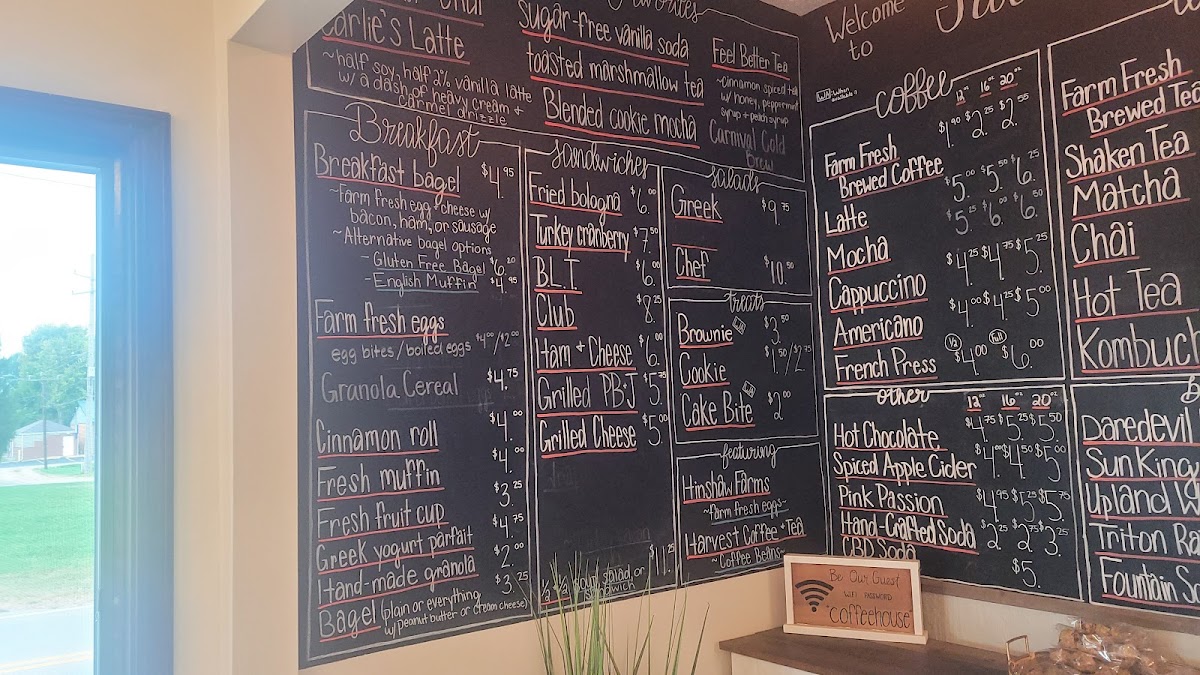 Favorites
Carlie's Latte
~half soy, half 2% vanilla latte
w/ a dash of heavy cream +
carmel drizzle
sugar-free vanilla soda
toasted marshmallow tea
Blended cookie mocha
Feel Better Tea
~cinnamon spiced tea
w/ honey, peppermint
syrup + peach syrup
Carnival Cold
Brew
Breakfast
Breakfast bagel $4.95
~Farm fresh egg + cheese w/
bacon, ham, or sausage
~Alternative bagel options
-Gluten Free Bagel $6.20
-English Muffin $4.95
Farm fresh eggs
egg bites/boiled eggs $4.00/$2.00
Granola Cereal $4.75
Cinnamon roll $4.00
Fresh muffin $4.00
Fresh fruit cup $3.25
Greek yogurt parfait $4.75
Hand-made granola $2.00
Bagel (plain or everything $3.25
w/ peanut butter or cream cheese)
sandwiches
Fried bologna $6.00
Turkey cranberry $7.50
B.L.T. $6.00
Club $8.25
Ham + Cheese $6.00
Grilled PB+J $5.75
Grilled Cheese $5.00
soup, salad or $11.25
sandwich
salads
Greek $9.75
Chef $10.50
treats
Brownie $3.50
Cookie $1.50/$2.75
Cake Bite $2.00
featuring
Hinshaw Farms
~farm fresh eggs~
Harvest Coffee + Tea
~Coffee Beans~
Welcome
to
coffee
12oz 16oz 20oz
Farm Fresh
Brewed Coffee $1.90 $2.25 $2.55
Latte $5.00 $5.50 $6.25
Mocha $5.25 $6.00 $6.50
Cappuccino $4.25 $4.75 $5.25
Americano $4.00 $4.25 $5.00
1/2 Full
French Press $4.00 $6.00
other
12oz 16oz 20oz
Hot Chocolate $4.75 $5.25 $5.50
Spiced Apple Cider $4.00 $4.50 $5.00
Pink Passion $4.95 $5.25 $5.75
Hand-Crafted Soda $2.25 $2.75 $3.25
CBD Soda $5.
Farm Fresh
Brewed Tea
Shaken Tea
Matcha
Chai
Hot Tea
Daredevil
Sun King
Upland
Triton
Fountain
Be Our Guest
WIFI PASSWORD
"coffeehouse"